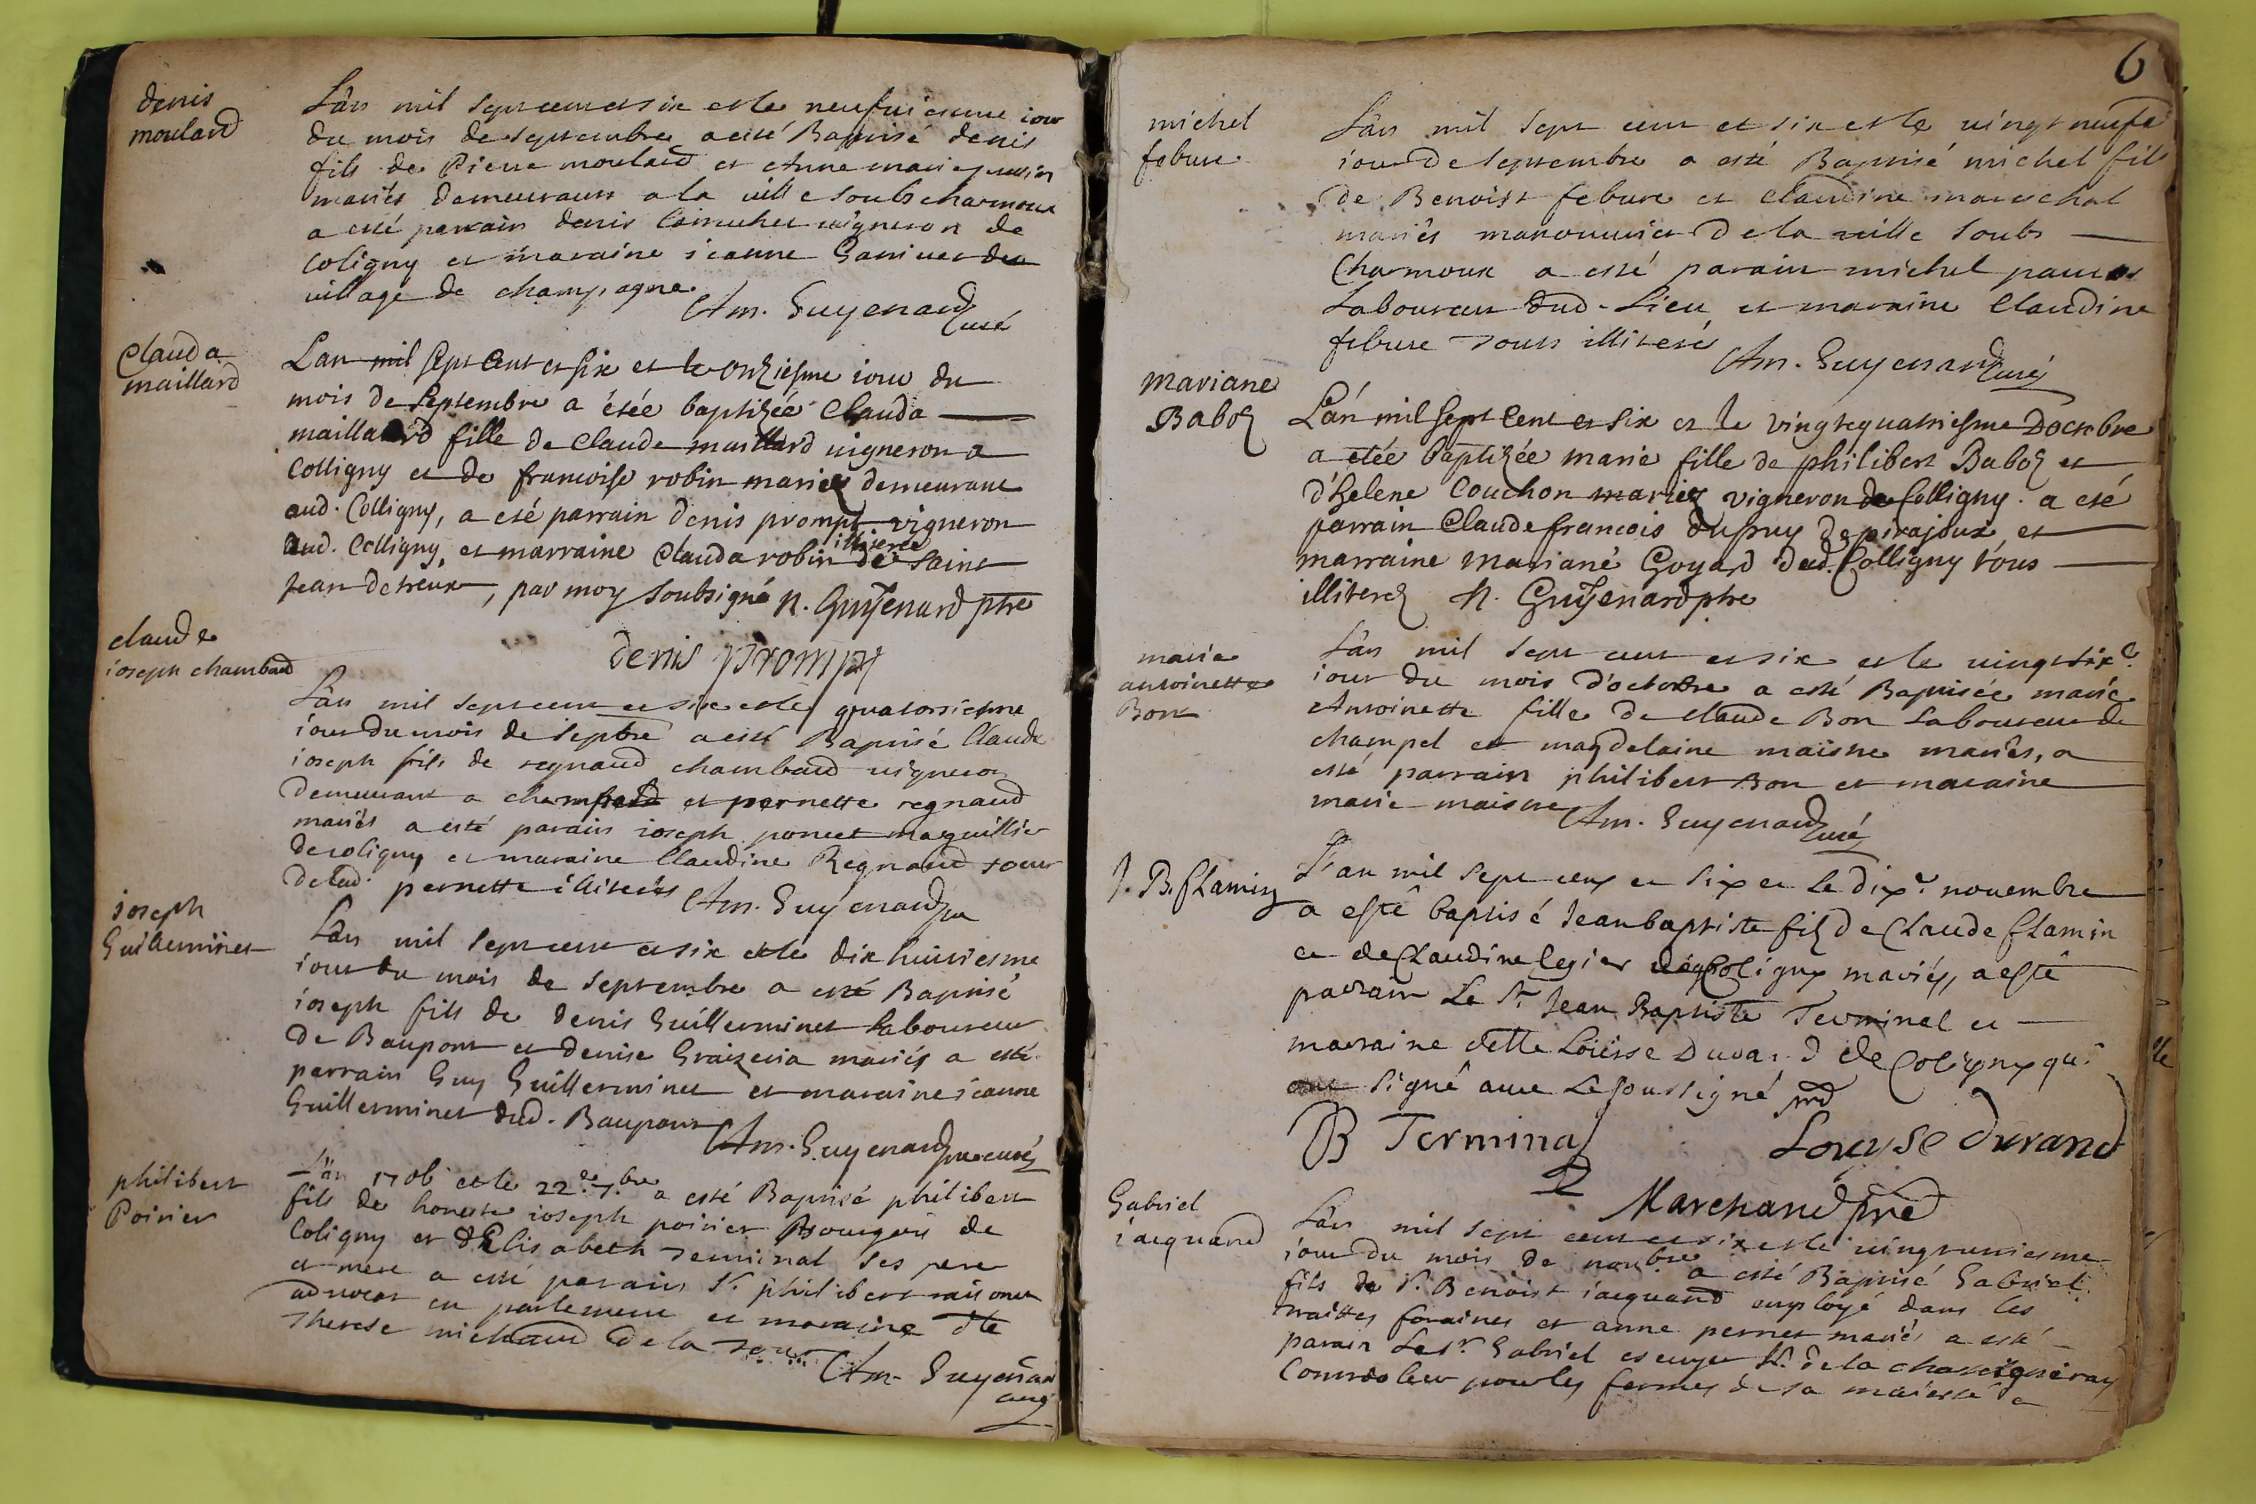 denis
moulard
Lan mil sept cent et six et le neufuiesme iour
du mois de septembre a esté Baptisé denis
fils de Pierre moulard et Anne marie
mariés demeurants a la ville soubs charmoux
a esté parrain denis vigneron de
Coligny et maraine ieanne Ganiuet du
village de champagne
Am. Guyenard curé
Clauda
maillard
Lan mil sept Cent et six et le onziesme iour du
mois de Septembre a étée baptizée Clauda
maillard fille de Claude maillard vigneron a
Colligny et de francoise robin mariez demeurant
aud. Colligny, a eté parrain denis prompt vigneron
dud. Colligny, et marraine Clauda robin illiterée de Saint
Jean detreux, par moy soubsigné N. Guyenard ptre
denis prompt
claude
ioseph chambard
Lan mil sept cent et six et le quatorsiesme
iour du mois de septbre a esté Baptisé Claude
ioseph fils de regnaud chambard vigneron
demeurant a et pernette regnaud
mariés a esté parain ioseph poncet maguillier
de coligny et maraine Claudine Regnaud soeur
de lad. pernette illiterés Am. Guyenard
ioseph
Guillerminet
Lan mil sept cent et six et le dix huitiesme
iour du mois de septembre a esté Baptisé
ioseph fils de denis Guillerminet Laboureur
de Baupont et denise mariés a esté
parrain Guy Guillerminet et maraine ieanne
Guillerminet dud. Baupont Am. Guyenard curé
philibert
Poirier
Lan 1706 et le 22de 7bre a esté Baptisé philibert
fils de honeste ioseph poirier Bourgeois de
Coligny et d'Elisabeth Terminal ses pere
et mere a esté parain Sr. philibert
advocat en parlement et maraine dlle
Therese michaud de la Tour
Am. Guyenard
curé
6
michel
febure
Lan mil sept cent et six et le vingt neufe
iour de septembre a esté Baptisé michel fils
de Benoist febure et Claudine mareschal
mariés manouurier de la ville soubs
Charmoux a esté parain michel
Laboureur dud. Lieu et maraine Claudine
febure tous illiteré
Am. Guyenard curé
Mariane
Baboz
Lan mil sept Cent et six et le vingtequatriesme Doctobre
a etée baptizée marie fille de philibert Baboz et
d'helene Couchon mariez vigneron de Colligny. a eté
parrain Claude francois dupuy de pirajoux, et
marraine Mariane Goyard dud. Colligny tous
illiterez N. Guyenard ptre
marie
antoinette
Bon
Lan mil sept cent et six et le vingt sixe
iour du mois d'octobre a esté Baptisée marie
Antoinette fille de claude Bon Laboureur de
champel et magdelaine maistre mariés, a
esté parrain philibert Bon et maraine
marie maistre Am. Guyenard curé
J. B. flamin
L'an mil sept cens et six et le dixe novembre
a esté baptisé Jean baptiste filz de Claude flamin
et de Claudine legier de Coligny mariés, a esté
parrain Le Sr Jean Baptiste Terminal et
marraine delle Loüisse Durand de Coligny qui
ont signé avec Le soussigné prd
JB Terminal
Louyse durand
Marchand prd
Gabriel
iacquand
Lan mil sept cent et six et le vingtuniesme
iour du mois de novbre a esté Baptisé Gabriel
fils de Sr. Benoist iacquand employé dans les
traittes foraines et anne pernet mariés a esté
parain Le Sr. Gabriel escuyer Sr. de la chateigneray
Controoleur pour les fermes de sa maiesté a